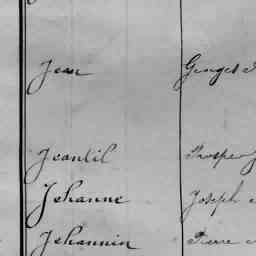 Jean Georges
Jeantil Prosper
Jehanne Joseph
Jehannin Pierre